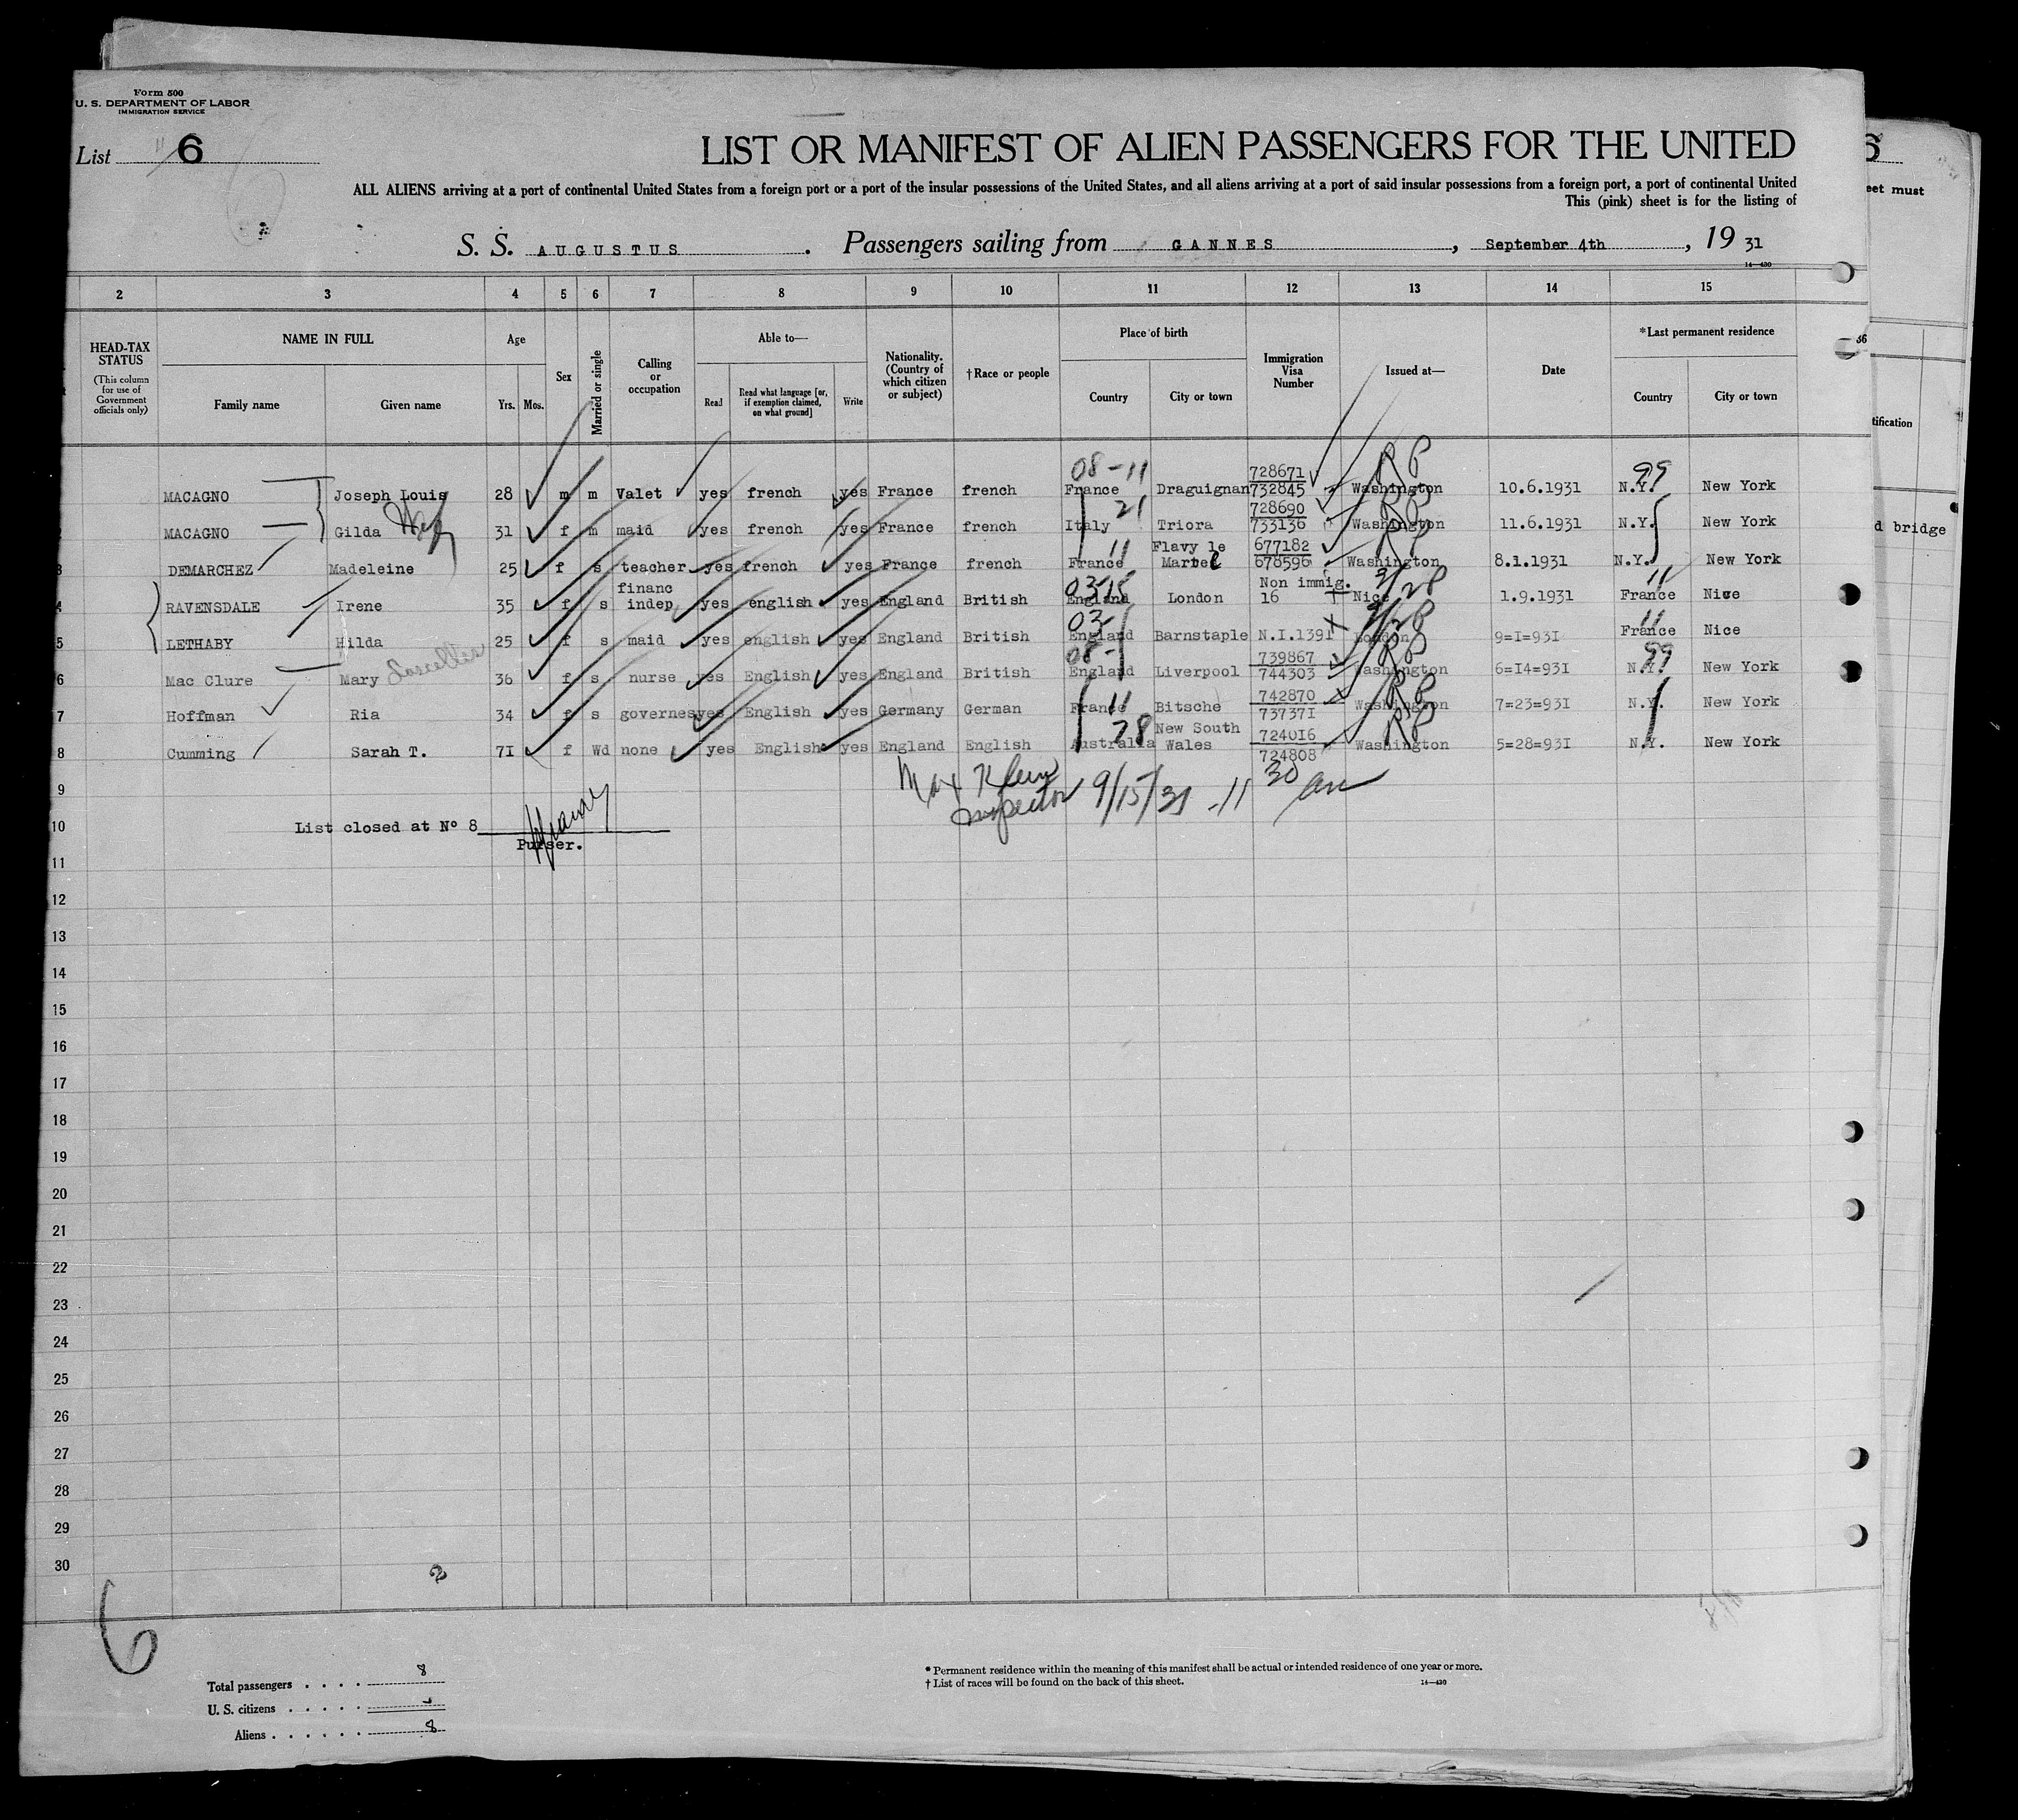 Form 500
U. S. DEPARTMENT OF LABOR
IMMIGRATION SERVICE
List 6
LIST OR MANIFEST OF ALIEN PASSENGERS FOR THE UNITED
ALL ALIENS arriving at a port of continental United States from a foreign port or a port of the insular possessions of the United States, and all aliens arriving at a port of said insular possessions from a foreign port, a port of continental United
This (pink) sheet is for the listing of
eet must
S. S. AUGUSTUS. Passengers sailing from GANNES, September 4th, 19 31
14—430
2 3 4 5 6 7 8 9 10 11 12 13 14 15
HEAD-TAX STATUS (This column for use of Government officials only)
NAME IN FULL Family name Given name
Age Yrs. Mos.
Sex
Married or single
Calling or occupation
Able to— Read Read what language [or, if exemption claimed, on what ground] Write
Nationality. (Country of which citizen or subject)
†Race or people
Place of birth Country City or town
Immigration Visa Number
Issued at—
Date
*Last permanent residence Country City or town
36
tification
d bridge
08-11 728671 99
MACAGNO Joseph Louis 28 m m Valet yes french yes France french France Draguignan 732845 Washington RP 10.6.1931 N.Y. New York
21 728690
MACAGNO Gilda 31 f m maid yes french yes France french Italy Triora 733136 Washington RP 11.6.1931 N.Y. New York
11 Flavy le 677182
3 DEMARCHEZ Madeleine 25 f s teacher yes french yes France french France Martel 678596 Washington RP 8.1.1931 N.Y. New York
financ Non immig. 11
4 RAVENSDALE Irene 35 f s indep yes english yes England British England London 16 Nice 1.9.1931 France Nice
03 11
5 LETHABY Hilda 25 f s maid yes english yes England British England Barnstaple N.I.1391 London 9=I=93I France Nice
08- 739867 99
6 Mac Clure Mary 36 f s nurse yes English yes England British England Liverpool 744303 Washington RP 6=I4=93I N.Y. New York
11 742870
7 Hoffman Ria 34 f s governes yes English yes Germany German France Bitsche 73737I Washington RP 7=23=93I N.Y. New York
28 New South 724016
8 Cumming Sarah T. 7I f Wd none yes English yes England English Australia Wales 724808 Washington RP 5=28=93I N.Y. New York
9
Max Klein
Inspector 9/15/31 - 11 30 am
10 List closed at Nº 8
Purser.
11
12
13
14
15
16
17
18
19
20
21
22
23
24
25
26
27
28
29
30
2
6
Total passengers 8
U. S. citizens -
Aliens 8
* Permanent residence within the meaning of this manifest shall be actual or intended residence of one year or more.
† List of races will be found on the back of this sheet.
14—430